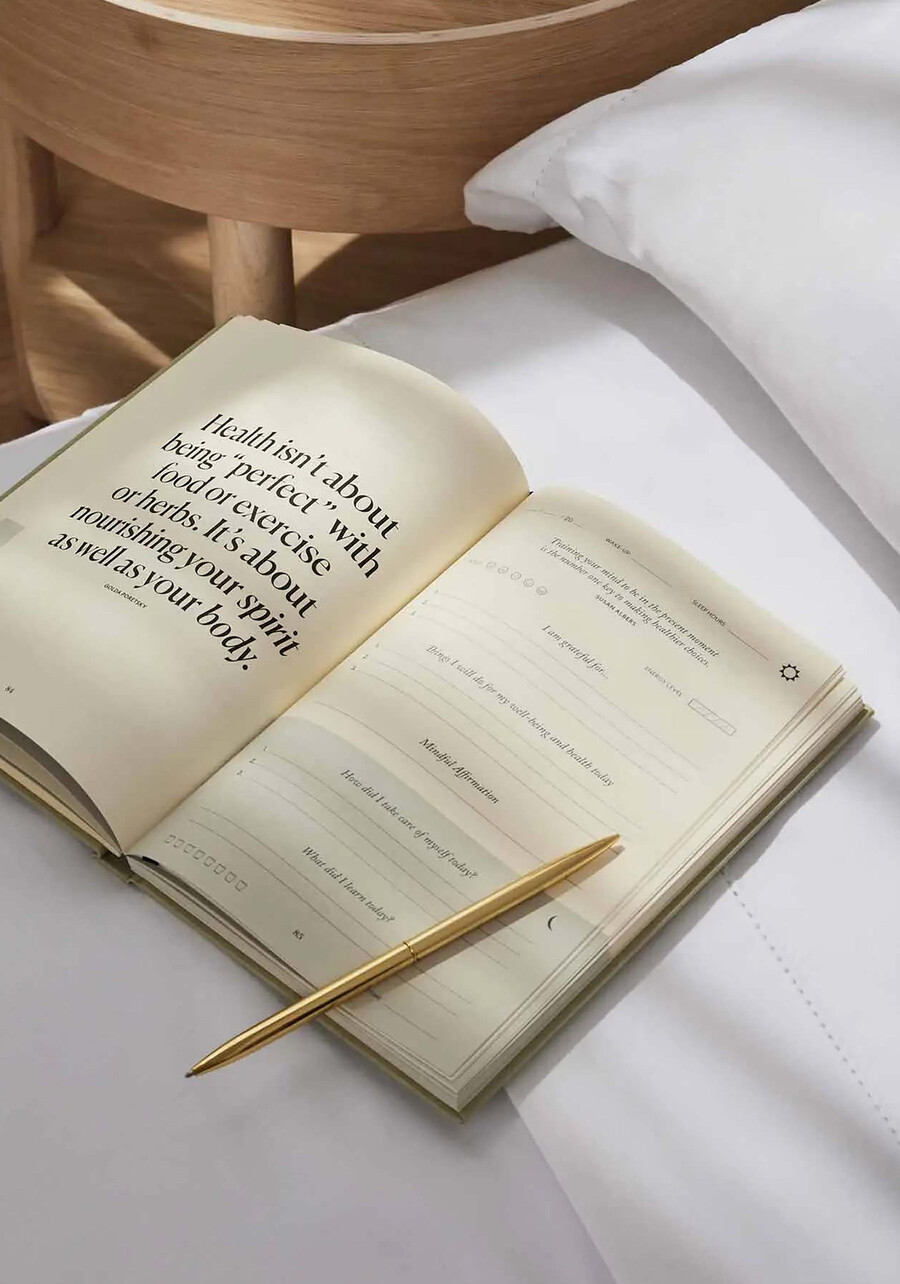 Health isn't about
being “perfect” with
food or exercise
or herbs. It's about
nourishing your spirit
as well as your body.
GOLDA PORETSKY
84
20
WAKE-UP
SLEEP HOURS
Training your mind to be in the present moment
is the number one key to making healthier choices.
SUSAN ALBERS
I am grateful for...
1.
2.
3.
ENERGY LEVEL
Things I will do for my well-being and health today
1.
2.
3.
Mindful Affirmation
How did I take care of myself today?
1.
2.
3.
What did I learn today?
85